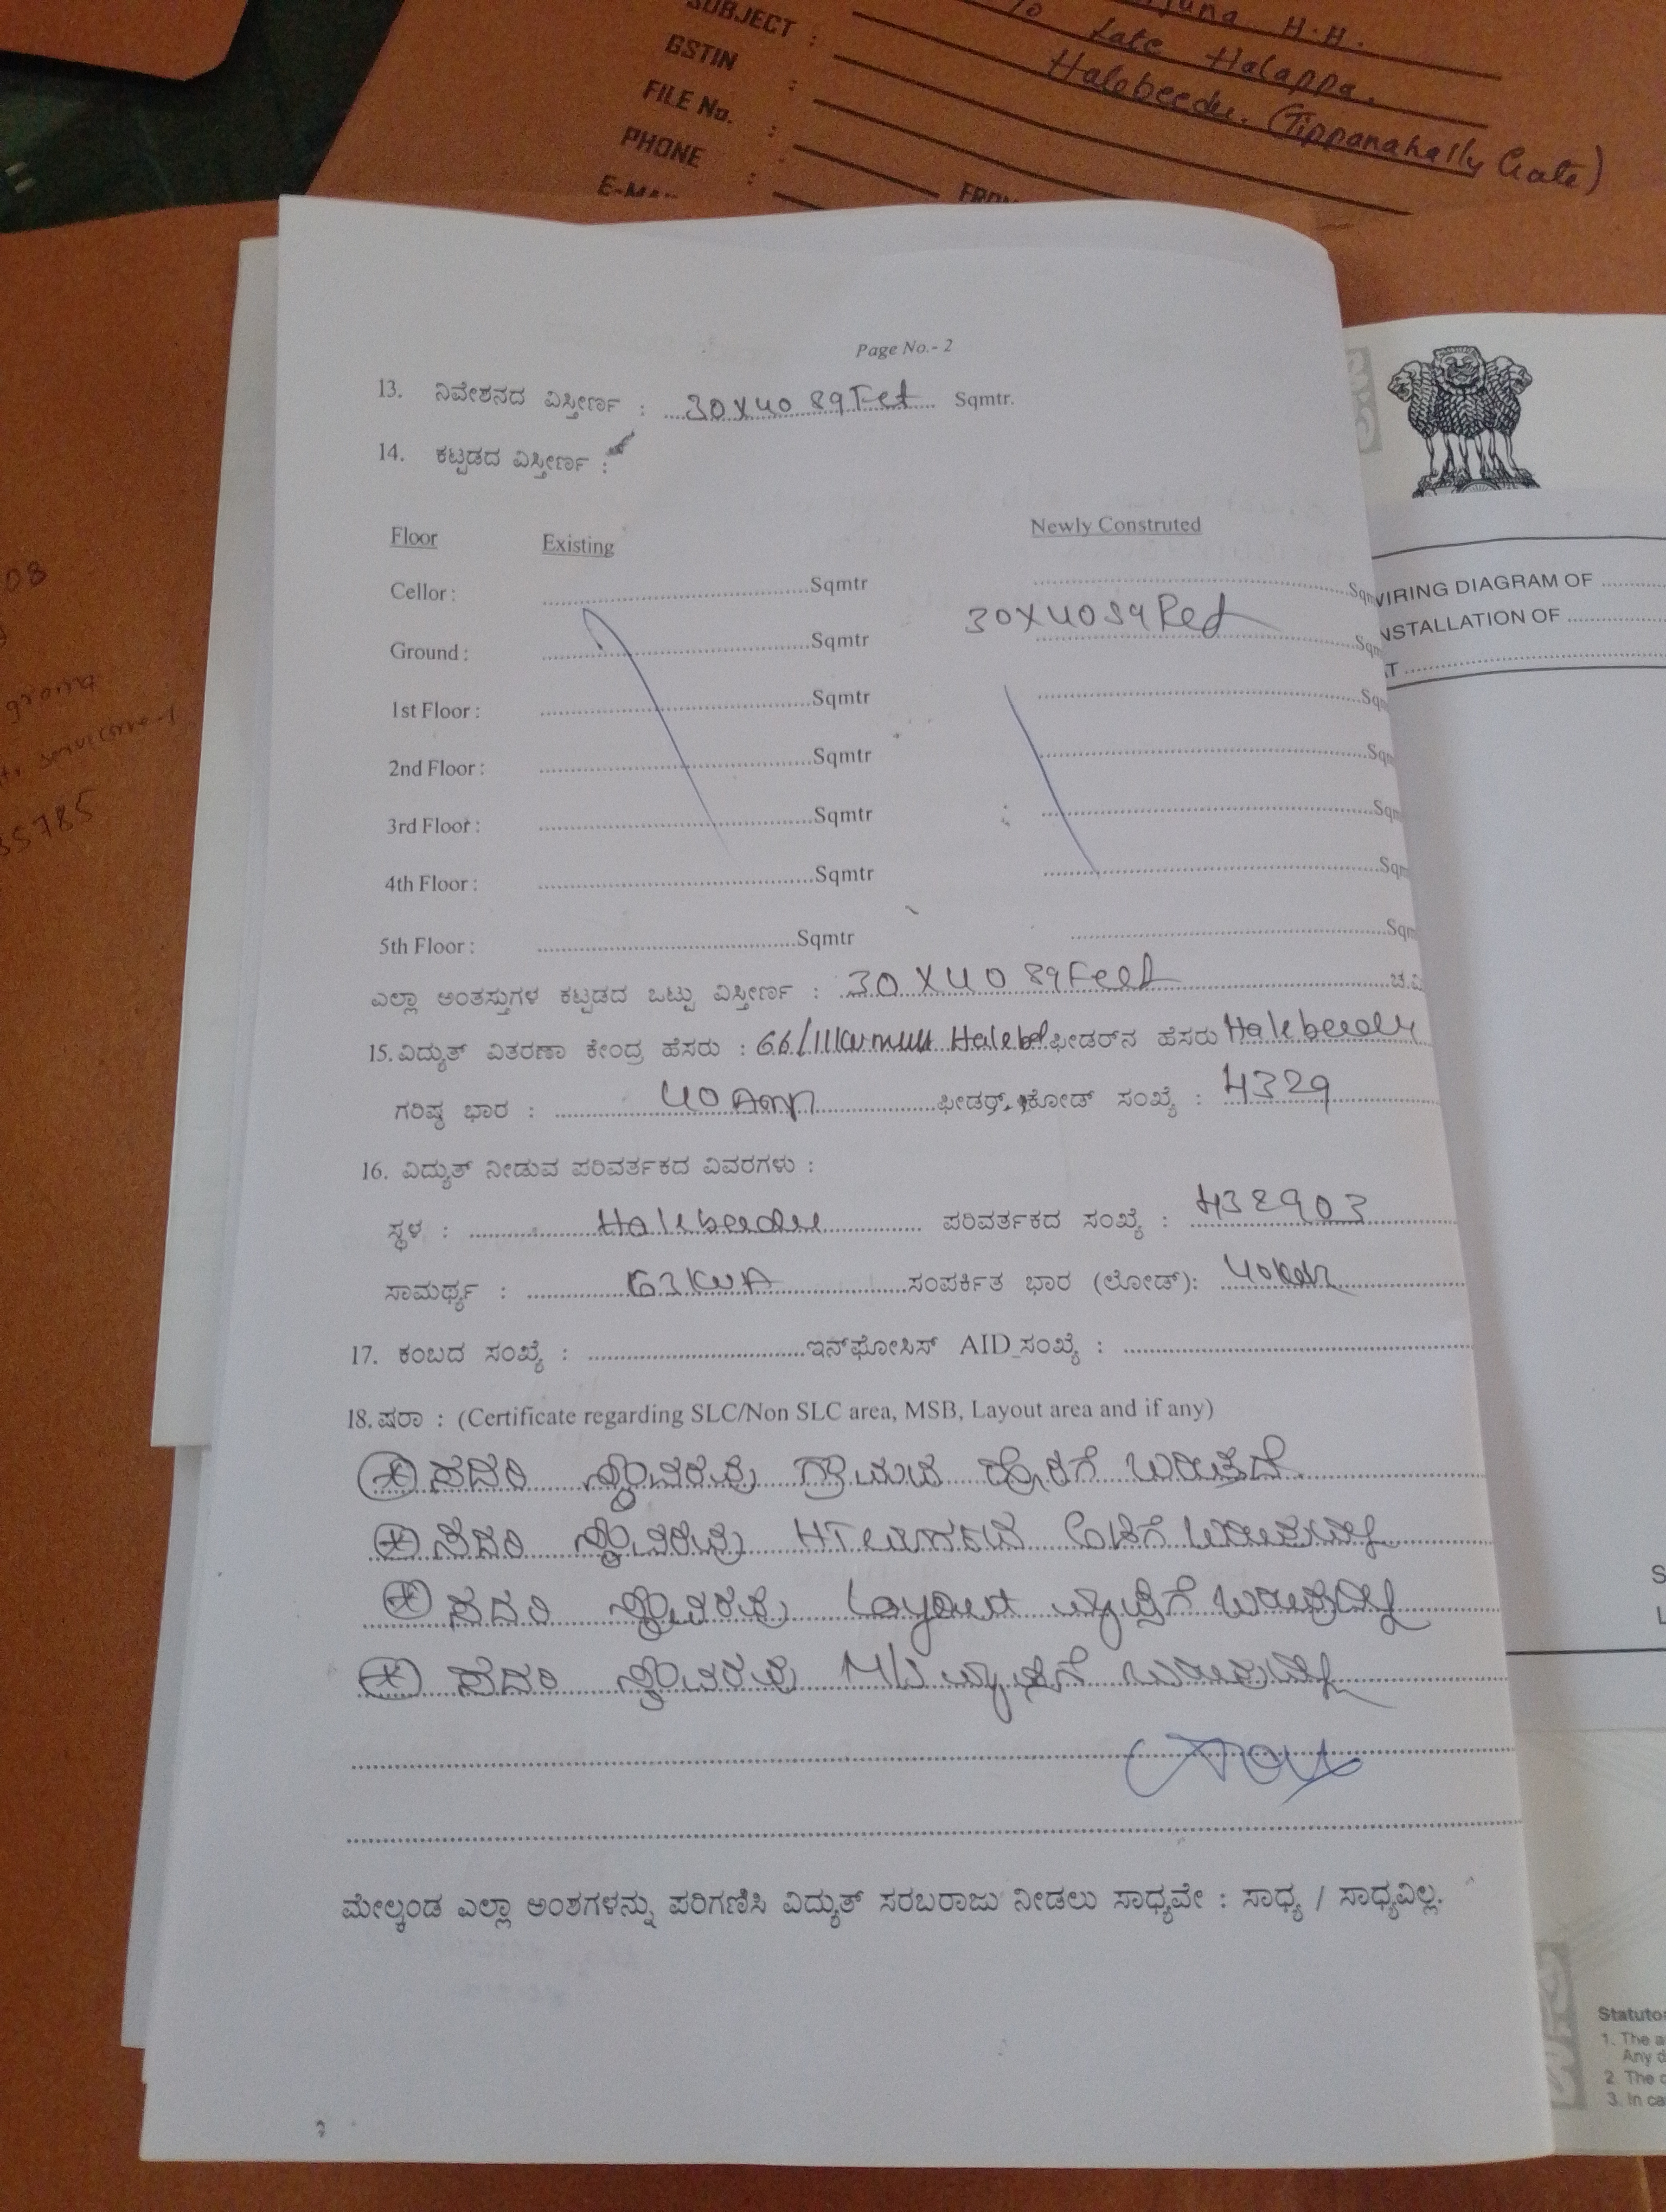 SUBJECT :
GSTIN :
FILE No. :
PHONE :
H.H.
Late Halappa.
Halebeedu. (Tippanahally Gate)
Page No.- 2
13. ನಿವೇಶನದ ವಿಸ್ತೀರ್ಣ : 30X40 Sq Fet Sqmtr.
14. ಕಟ್ಟಡದ ವಿಸ್ತೀರ್ಣ :
Floor Existing Newly Construted
Cellor : Sqmtr
Ground : Sqmtr 30X40 Sq
1st Floor : Sqmtr
2nd Floor : Sqmtr
3rd Floor : Sqmtr
4th Floor : Sqmtr
5th Floor : Sqmtr
ಎಲ್ಲಾ ಅಂತಸ್ತುಗಳ ಕಟ್ಟಡದ ಒಟ್ಟು ವಿಸ್ತೀರ್ಣ : 30 X 40 Sq Feet
15. ವಿದ್ಯುತ್ ವಿತರಣಾ ಕೇಂದ್ರ ಹೆಸರು : 66/11 ಫೀಡರ್‌ನ ಹೆಸರು Halebeedu
ಗರಿಷ್ಠ ಭಾರ : 40 Amp ಫೀಡರ್ ಕೋಡ್ ಸಂಖ್ಯೆ : H329
16. ವಿದ್ಯುತ್ ನೀಡುವ ಪರಿವರ್ತಕದ ವಿವರಗಳು :
ಸ್ಥಳ : Halebeedu ಪರಿವರ್ತಕದ ಸಂಖ್ಯೆ : H32903
ಸಾಮರ್ಥ್ಯ : 63 KVA ಸಂಪರ್ಕಿತ ಭಾರ (ಲೋಡ್):
17. ಕಂಬದ ಸಂಖ್ಯೆ : ಇನ್‌ಫೋಸಿಸ್ AID ಸಂಖ್ಯೆ :
18. ಷರಾ : (Certificate regarding SLC/Non SLC area, MSB, Layout area and if any)
ಸದರಿ ಸ್ಥಾವರವು ಗ್ರಾಮದ ಬರುತ್ತದೆ.
ಸದರಿ ಸ್ಥಾವರವು HT ಬರುವುದಿಲ್ಲ
ಸದರಿ ಸ್ಥಾವರವು Layout ವ್ಯಾಪ್ತಿಗೆ ಬರುವುದಿಲ್ಲ
ಸದರಿ ಸ್ಥಾವರವು ವ್ಯಾಪ್ತಿಗೆ ಬರುವುದಿಲ್ಲ
ಮೇಲ್ಕಂಡ ಎಲ್ಲಾ ಅಂಶಗಳನ್ನು ಪರಿಗಣಿಸಿ ವಿದ್ಯುತ್ ಸರಬರಾಜು ನೀಡಲು ಸಾಧ್ಯವೇ : ಸಾಧ್ಯ / ಸಾಧ್ಯವಿಲ್ಲ.
WIRING DIAGRAM OF
INSTALLATION OF
1. The
2. The
3. In